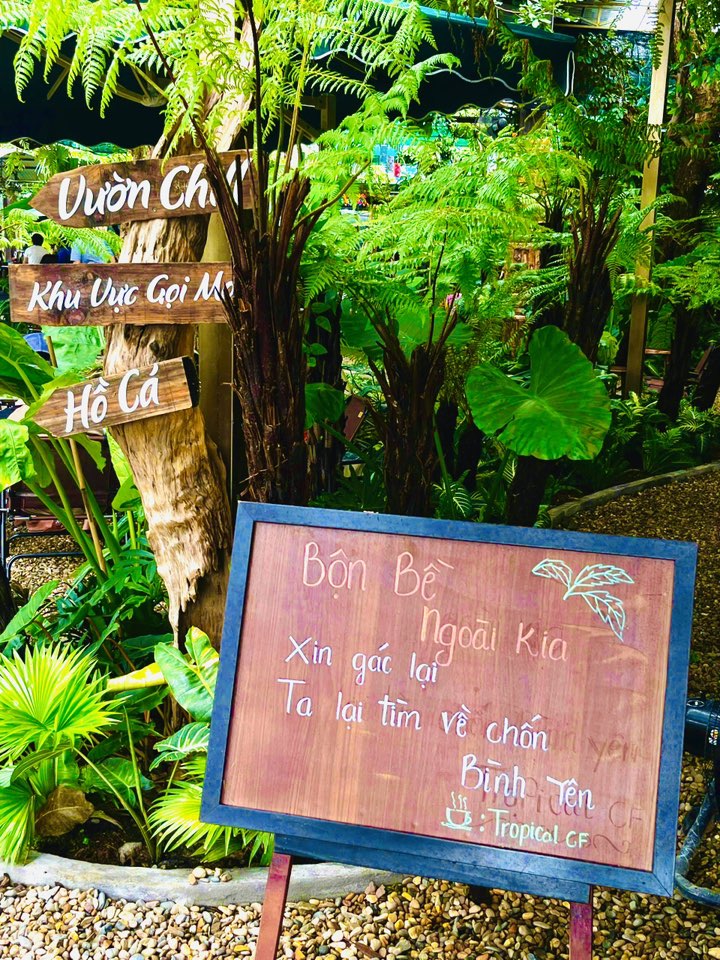 Vườn Chill
Khu Vực Gọi
Hồ Cá
Bộn Bề
Ngoài Kia
Xin gác lại
Ta lại tìm về chốn
Bình Yên
: Tropical CF